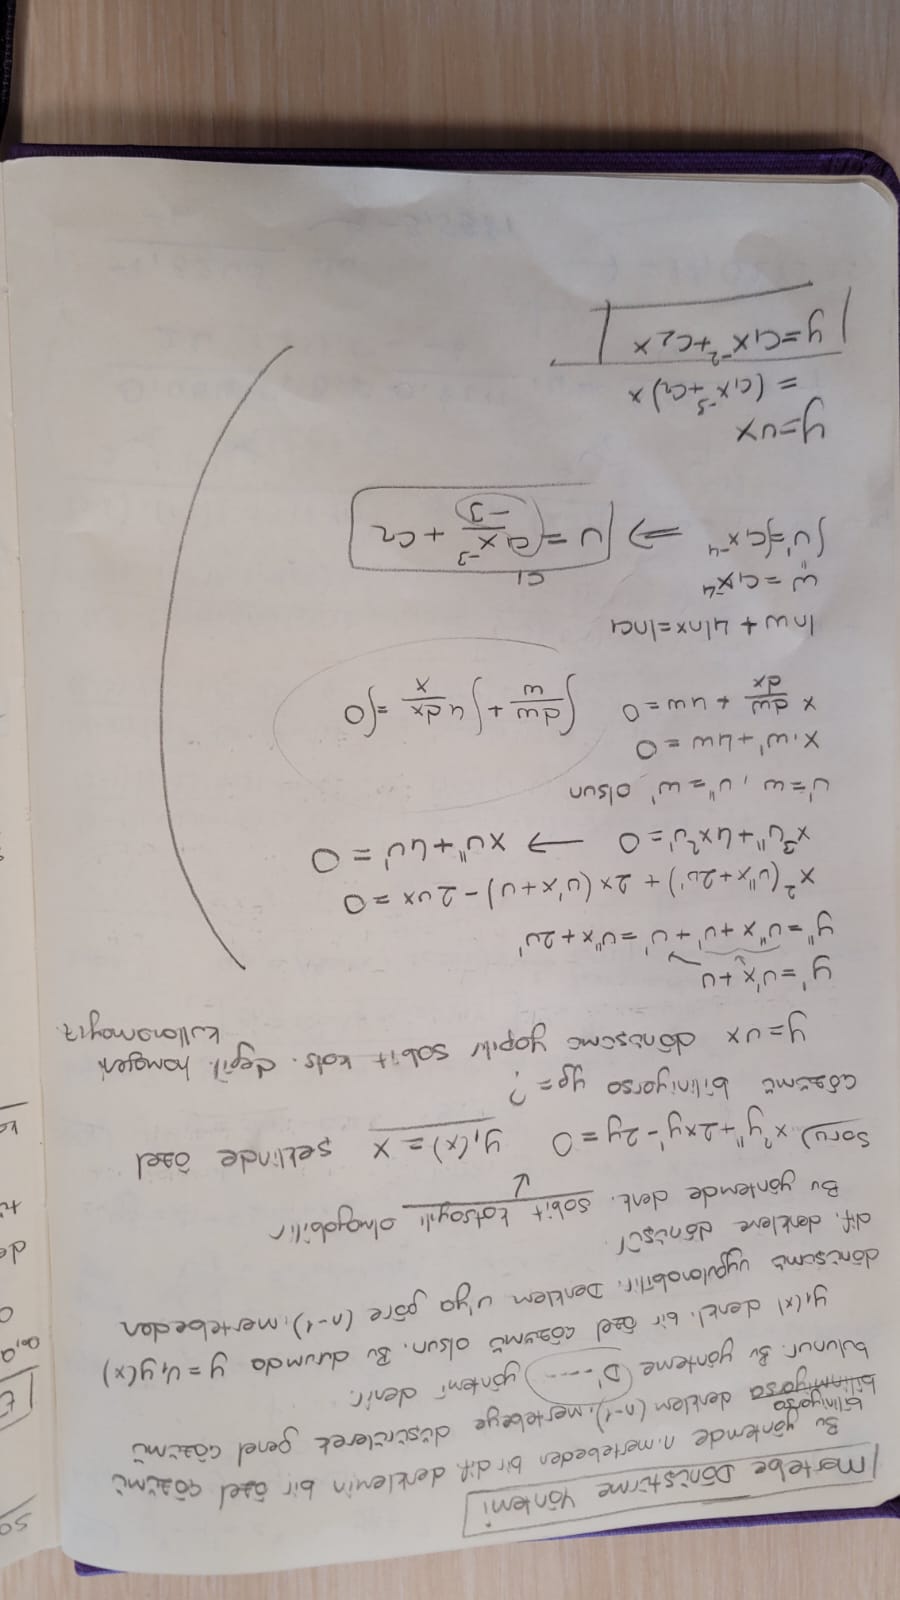 Mertebe Dönüştürme Yöntemi
Bu yöntemde n. mertebeden bir dif. denklemin bir özel çözümü
biliniyorsa denklem (n-1). mertebeye düşürülerek genel çözümü
bulunur. Bu yönteme (D'.....) yöntemi denir.
y₁(x) denkl. bir özel çözümü olsun. Bu durumda y = u.y(x)
dönüşümü uygulanabilir. Denklem u'ya göre (n-1). mertebeden
dif. denklene dönüşür.
Bu yöntemde denk. sabit katsayılı olmayabilir
Soru) x²y''+2xy'-2y=0 y₁(x)=x şeklinde özel
çözümü biliniyorsa yg=?
y=ux dönüşümü yapılır sabit kats. değil. homojen
kullanamayız.
y'=u'x+u
y''=u''x+u'+u'=u''x+2u'
x²(u''x+2u')+2x(u'x+u)-2ux=0
x³u''+4x²u'=0 → xu''+4u'=0
u'=w, u''=w' olsun
x.w'+4w=0
x dw/dx + 4w=0 ∫dw/w + ∫4dx/x = ∫0
lnw+4lnx=lnc₁
w=c₁x⁻⁴
∫u'=∫c₁x⁻⁴ ⇒ u = c₁x⁻³/-3 + c₂
c₁
y=ux
=(c₁x⁻³+c₂)x
y=c₁x⁻²+c₂x